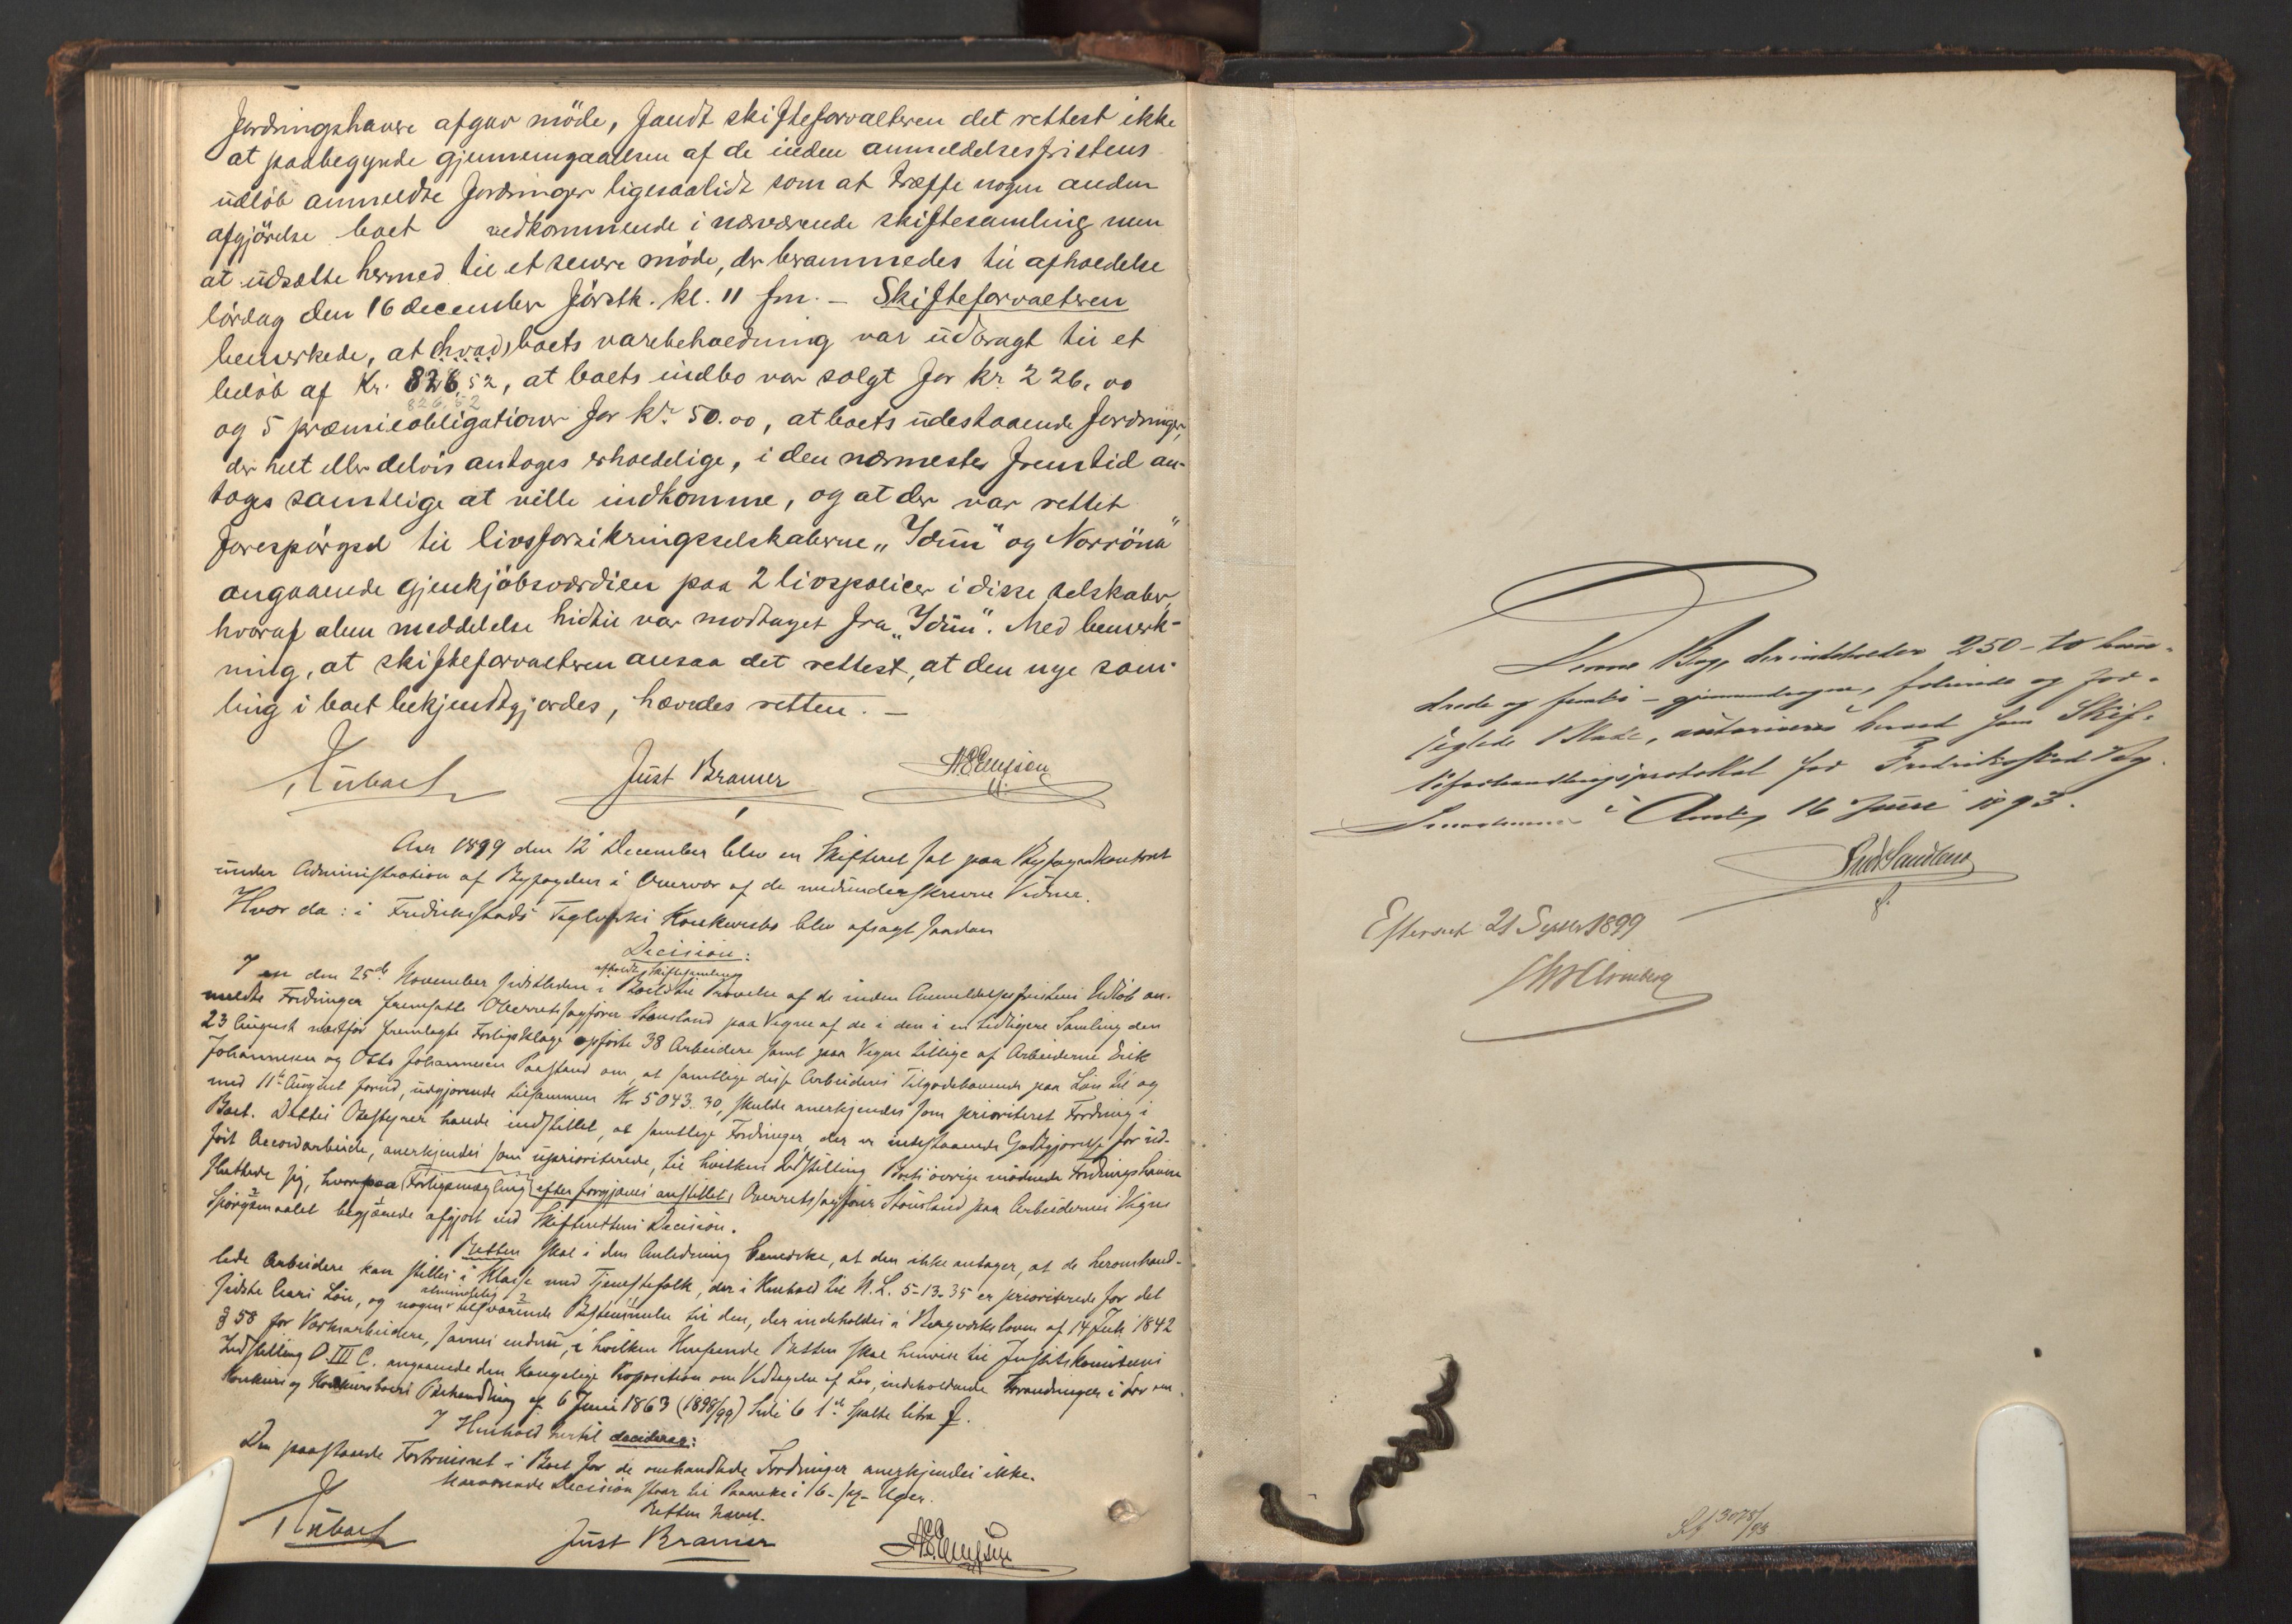 fordringshavere afgav möde, fandt skifteforvalteren det rettest ikke
at paabegynde gjennemgaaelsen af de inden anmeldelsesfristens
udløb anmeldte fordringer ligesaalidt som at træffe nogen anden
afgjörelse boet vedkommende i nærværende skiftesamling men
at udsætte hermed til et senere möde, der berammedes til afholdelse
lördag den 16 december förstk. kl. 11 fm. – Skifteforvalteren
bemerkede, at (hvad) boets varebeholdning var udbragt til et
belöb af Kr. 826,52, at boets indbo var solgt for kr. 226,00
826,52
og 5 præmieobligationer for kr. 50.00, at boets udestaaende fordringer,
der helt eller delvis antoges erholdelige, i den nærmeste fremtid an-
toges samtlige at ville indkomme, og at der var rettet
forespörgsel til livsforsikringsselskaberne „Idun" og Norröna"
angaaende gjenkjöbsværdien paa 2 livspolicer i disse selskaber,
hvoraf alene meddelelse hidtil var modtaget fra „Idun". Med bemerk-
ning, at skifteforvalteren ansaa det rettest, at den nye sam-
ling i boet bekjendtgjordes, hævedes retten. –
Just Bramer
Aar 1899 den 12 December blev en Skifteret sat paa Byfogedkontoret
under Administration af Byfogden i Overvær af de nedunderskrevne Vidner.
Hvor da: i Fredrikstads Teglverks Konkursbo blev afsagt saadan
Decision:
afholdt Skiftesamling
I en den 25de November sidstleden i Boet til Prøvelse af de inden Anmeldelsesfristens Udløb an-
meldte Fordringer fremsatte Overretssagfører Stousland paa Vegne af de i den i en tidligere Samling den
23 August næstfør fremlagte Forligsklage opførte 38 Arbeidere samt paa Vegne tillige af Arbeiderne Erik
Johannesen og Otto Johannesen Paastand om, at samtlige disse Arbeideres Tilgodehavende paa Løn til og
med 11te August forud, udgjørende tilsammen Kr 5043.30, skulde anerkjendes som prioriteret Fordring i
Boet. Dettes Bestyrer havde indstillet, at samtlige Fordringer, der er indestaaende Godtgjørelse for ud-
ført Accordarbeide, anerkjendes som uprioriterede, til hvilken Indstilling Boets øvrige mødende Fordringshavere
sluttede sig, hvorpaa (Forligsmægling) efter forgjæves anstillet, Overretssagfører Stousland paa Arbeidernes Vegne
Spørgsmaalet begjærede afgjort ved Skifterettens Decision.
Retten skal i den Anledning bemerke, at den ikke antager, at de heromhand-
lede Arbeidere kan stilles i Klasse med Tjenestefolk, der i Henhold til N. L. 5-13-35 er prioriterede for det
almindelig
sidste Aars Løn, og nogen tilsvarende Bestemmelse til den, der indeholdes i Bergverksloven af 14 Juli 1842
§ 58 for Verksarbeidere, savnes endnu, i hvilken Henseende Retten skal henvise til Justitskomiteens
Indstilling O III C. angaaende den kongelige Proposition om Vedtagelse af Lov, indeholdende Forandringer i Lov om
Konkurs og Konkursboers Behandling af 6 Juni 1863 (1898/99) Side 6 1ste Spalte litra f.
I Henhold hertil decideres:
Den paastaaede Fortrinsret i Boet for de omhandlede Fordringer anerkjendes ikke.
Nærværende Decision staar til Paaanke i 6 – sex – Uger.
Retten hævet.
Just Bramer
Denne Bog, der indeholder 250 – to hun-
drede og femti – gjennemdragne, folierede og for-
seglede Blade, autoriseres herved som Skif-
teforhandlingsprotokol for Fredrikstad Fog-
16 Juni 1893.
Efterseet 21 Septbr 1899
3078/93